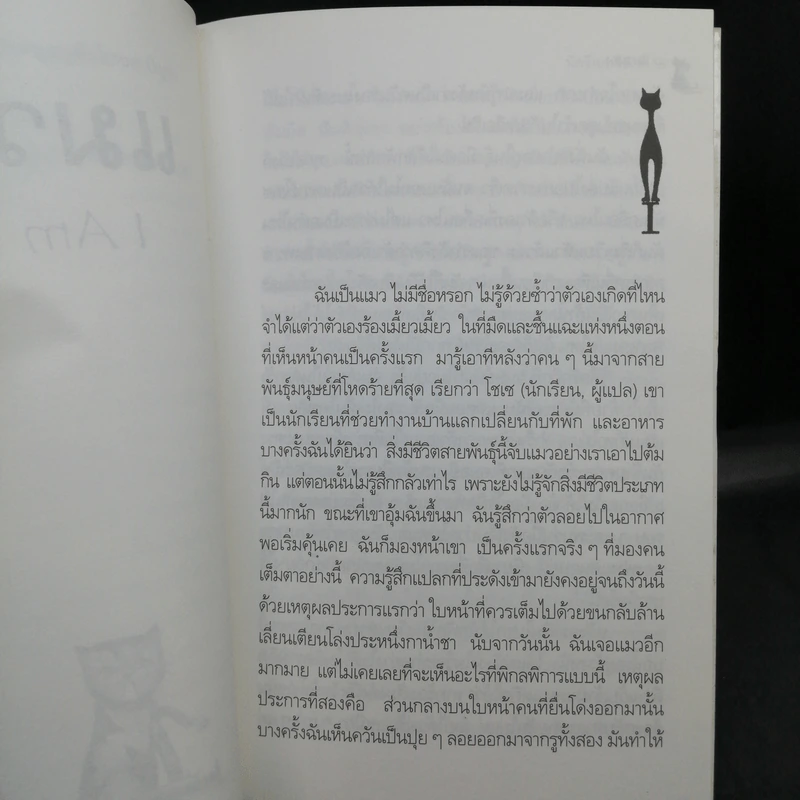 แมว
I Am
ฉันเป็นแมว ไม่มีชื่อหรอก ไม่รู้ด้วยซ้ำว่าตัวเองเกิดที่ไหน
จำได้แต่ว่าตัวเองร้องเมี้ยวเมี้ยว ในที่มืดและชื้นแฉะแห่งหนึ่งตอน
ที่เห็นหน้าคนเป็นครั้งแรก มารู้เอาทีหลังว่าคน ๆ นี้มาจากสาย
พันธุ์มนุษย์ที่โหดร้ายที่สุด เรียกว่า โชเซ (นักเรียน, ผู้แปล) เขา
เป็นนักเรียนที่ช่วยทำงานบ้านแลกเปลี่ยนกับที่พัก และอาหาร
บางครั้งฉันได้ยินว่า สิ่งมีชีวิตสายพันธุ์นี้จับแมวอย่างเราเอาไปต้ม
กิน แต่ตอนนั้นไม่รู้สึกกลัวเท่าไร เพราะยังไม่รู้จักสิ่งมีชีวิตประเภท
นี้มากนัก ขณะที่เขาอุ้มฉันขึ้นมา ฉันรู้สึกว่าตัวลอยไปในอากาศ
พอเริ่มคุ้นเคย ฉันก็มองหน้าเขา เป็นครั้งแรกจริง ๆ ที่มองคน
เต็มตาอย่างนี้ ความรู้สึกแปลกที่ประดังเข้ามายังคงอยู่จนถึงวันนี้
ด้วยเหตุผลประการแรกว่า ใบหน้าที่ควรเต็มไปด้วยขนกลับล้าน
เลี่ยนเตียนโล่งประหนึ่งกาน้ำชา นับจากวันนั้น ฉันเจอแมวอีก
มากมาย แต่ไม่เคยเลยที่จะเห็นอะไรที่พิกลพิการแบบนี้ เหตุผล
ประการที่สองคือ ส่วนกลางบนใบหน้าคนที่ยื่นโด่งออกมานั้น
บางครั้งฉันเห็นควันเป็นปุย ๆ ลอยออกมาจากรูทั้งสอง มันทำให้